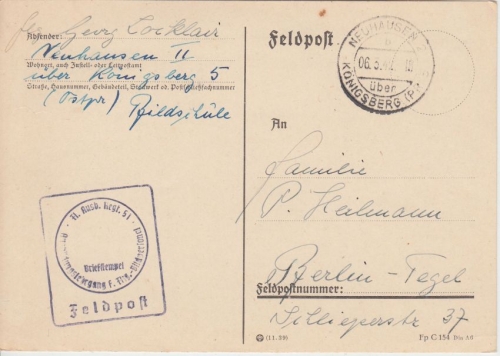 Absender: Georg Locklair
Neuhausen II
Wohnort, auch Zustell- oder Leitpostamt
über Königsberg 5
Straße, Hausnummer, Gebäudeteil, Stockwerk od. Postschließfachnummer
(Ostpr) Bildschule
Feldpost
NEUHAUSEN
b
06.5.
über
KÖNIGSBERG (Pr)
An
Familie
P. Heilmann
Berlin-Tegel
Feldpostnummer:
37
Fl. Ausb. Regt. 51
Briefstempel
Feldpost
(11.39)
Fp C 154 Din A6